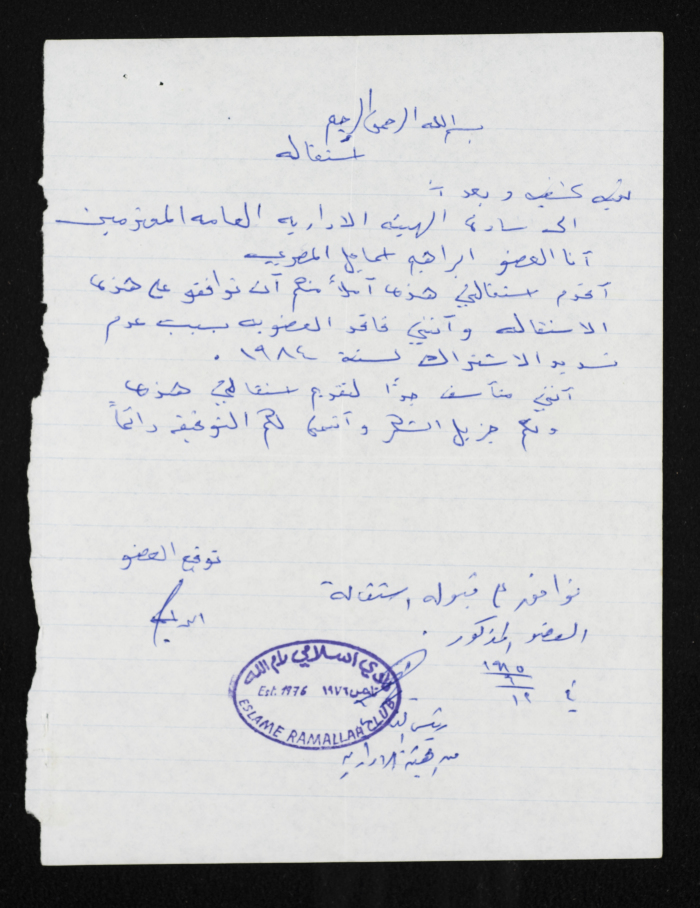 بسم الله الرحمن الرحيم
استقاله
تحيه كشفيه وبعد :
الى ساده الهيئه الاداريه العامه المحترمين
أنا العضو ابراهيم اسماعيل المصري
أتقدم استقالتي هذه آملاً منكم أن توافقو على هذه
الاستقاله وأنني فاقد العضويه بسبب عدم
تسديد الاشتراك لسنة ١٩٨٤ .
أنني متأسف جداً لتقديم استقالتي هذه
ولكم جزيل الشكر وأتمنى لكم التوفيق دائماً
توقيع العضو
نوافق على قبول استقالة
العضو المذكور .
في ١٩٨٥/٩/١٢
نادي اسلامي رام الله
Est. 1976 تأسس ١٩٧٦
ESLAME RAMALLAH CLUB
رئيس
الهيئة الادارية